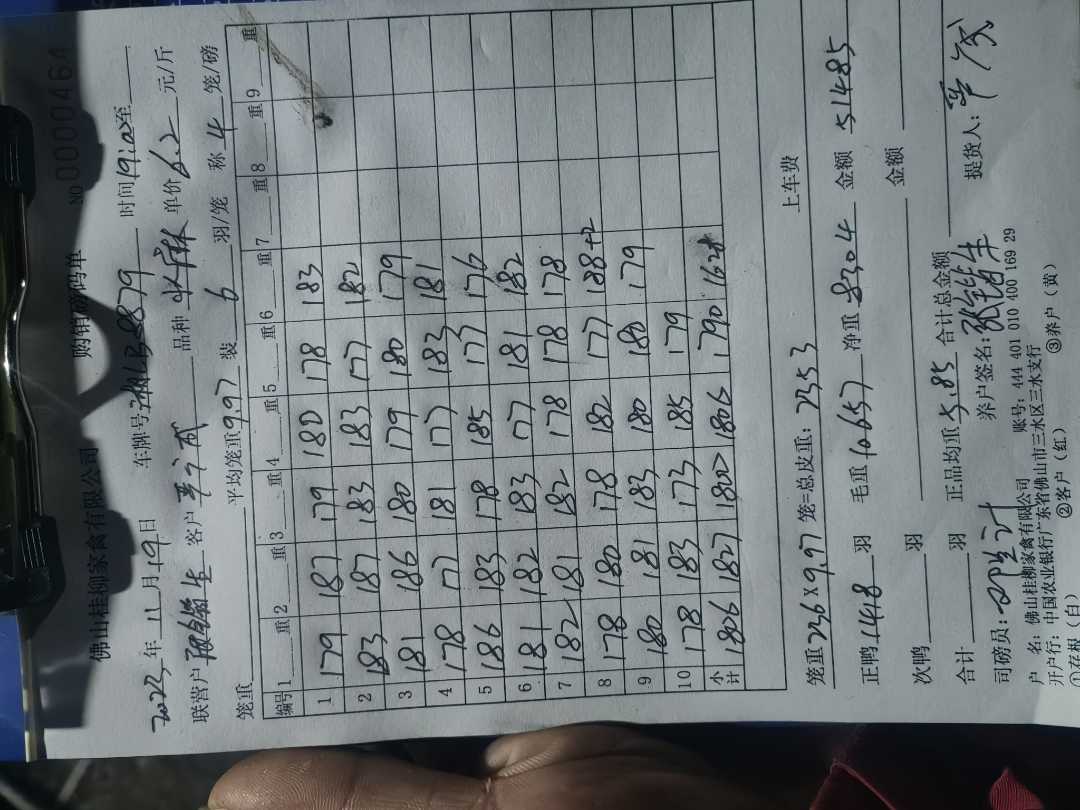 佛山桂柳家禽有限公司 购销磅码单 NO 00000464
2023年 11月19日 车牌号 湘LB8879 时间 19:02至
联营户 客户 品种 单价 6.2 元/斤
笼重 平均笼重 9.97 装 6 羽/笼 称 4 笼/磅
编号 1 重 2 重 3 重 4 重 5 重 6 重 7 重 8 重 9 重
1 179 187 179 180 178 183
2 183 187 183 183 177 182
3 181 186 180 179 180 179
4 178 177 181 177 183 181
5 186 183 178 185 177 176
6 181 182 183 177 181 182
7 182 181 182 178 178 178
8 178 180 178 182 177 188+2
9 180 181 183 180 180 179
10 178 183 173 185 179
小计 1806 1827 1800 1806 1790 1628
笼重 236 × 9.97 笼=总皮重: 2353 上车费
正鸭 1418 羽 毛重 10657 净重 8304 金额 51485
次鸭 羽 金额
合计 羽 正品均重 5.85 合计总金额
司磅员: 养户签名: 提货人:
户 名: 佛山桂柳家禽有限公司 账号: 444 401 010 400 169 29
开户行: 中国农业银行广东省佛山市三水区三水支行
①存根(白) ②客户(红) ③养户(黄)